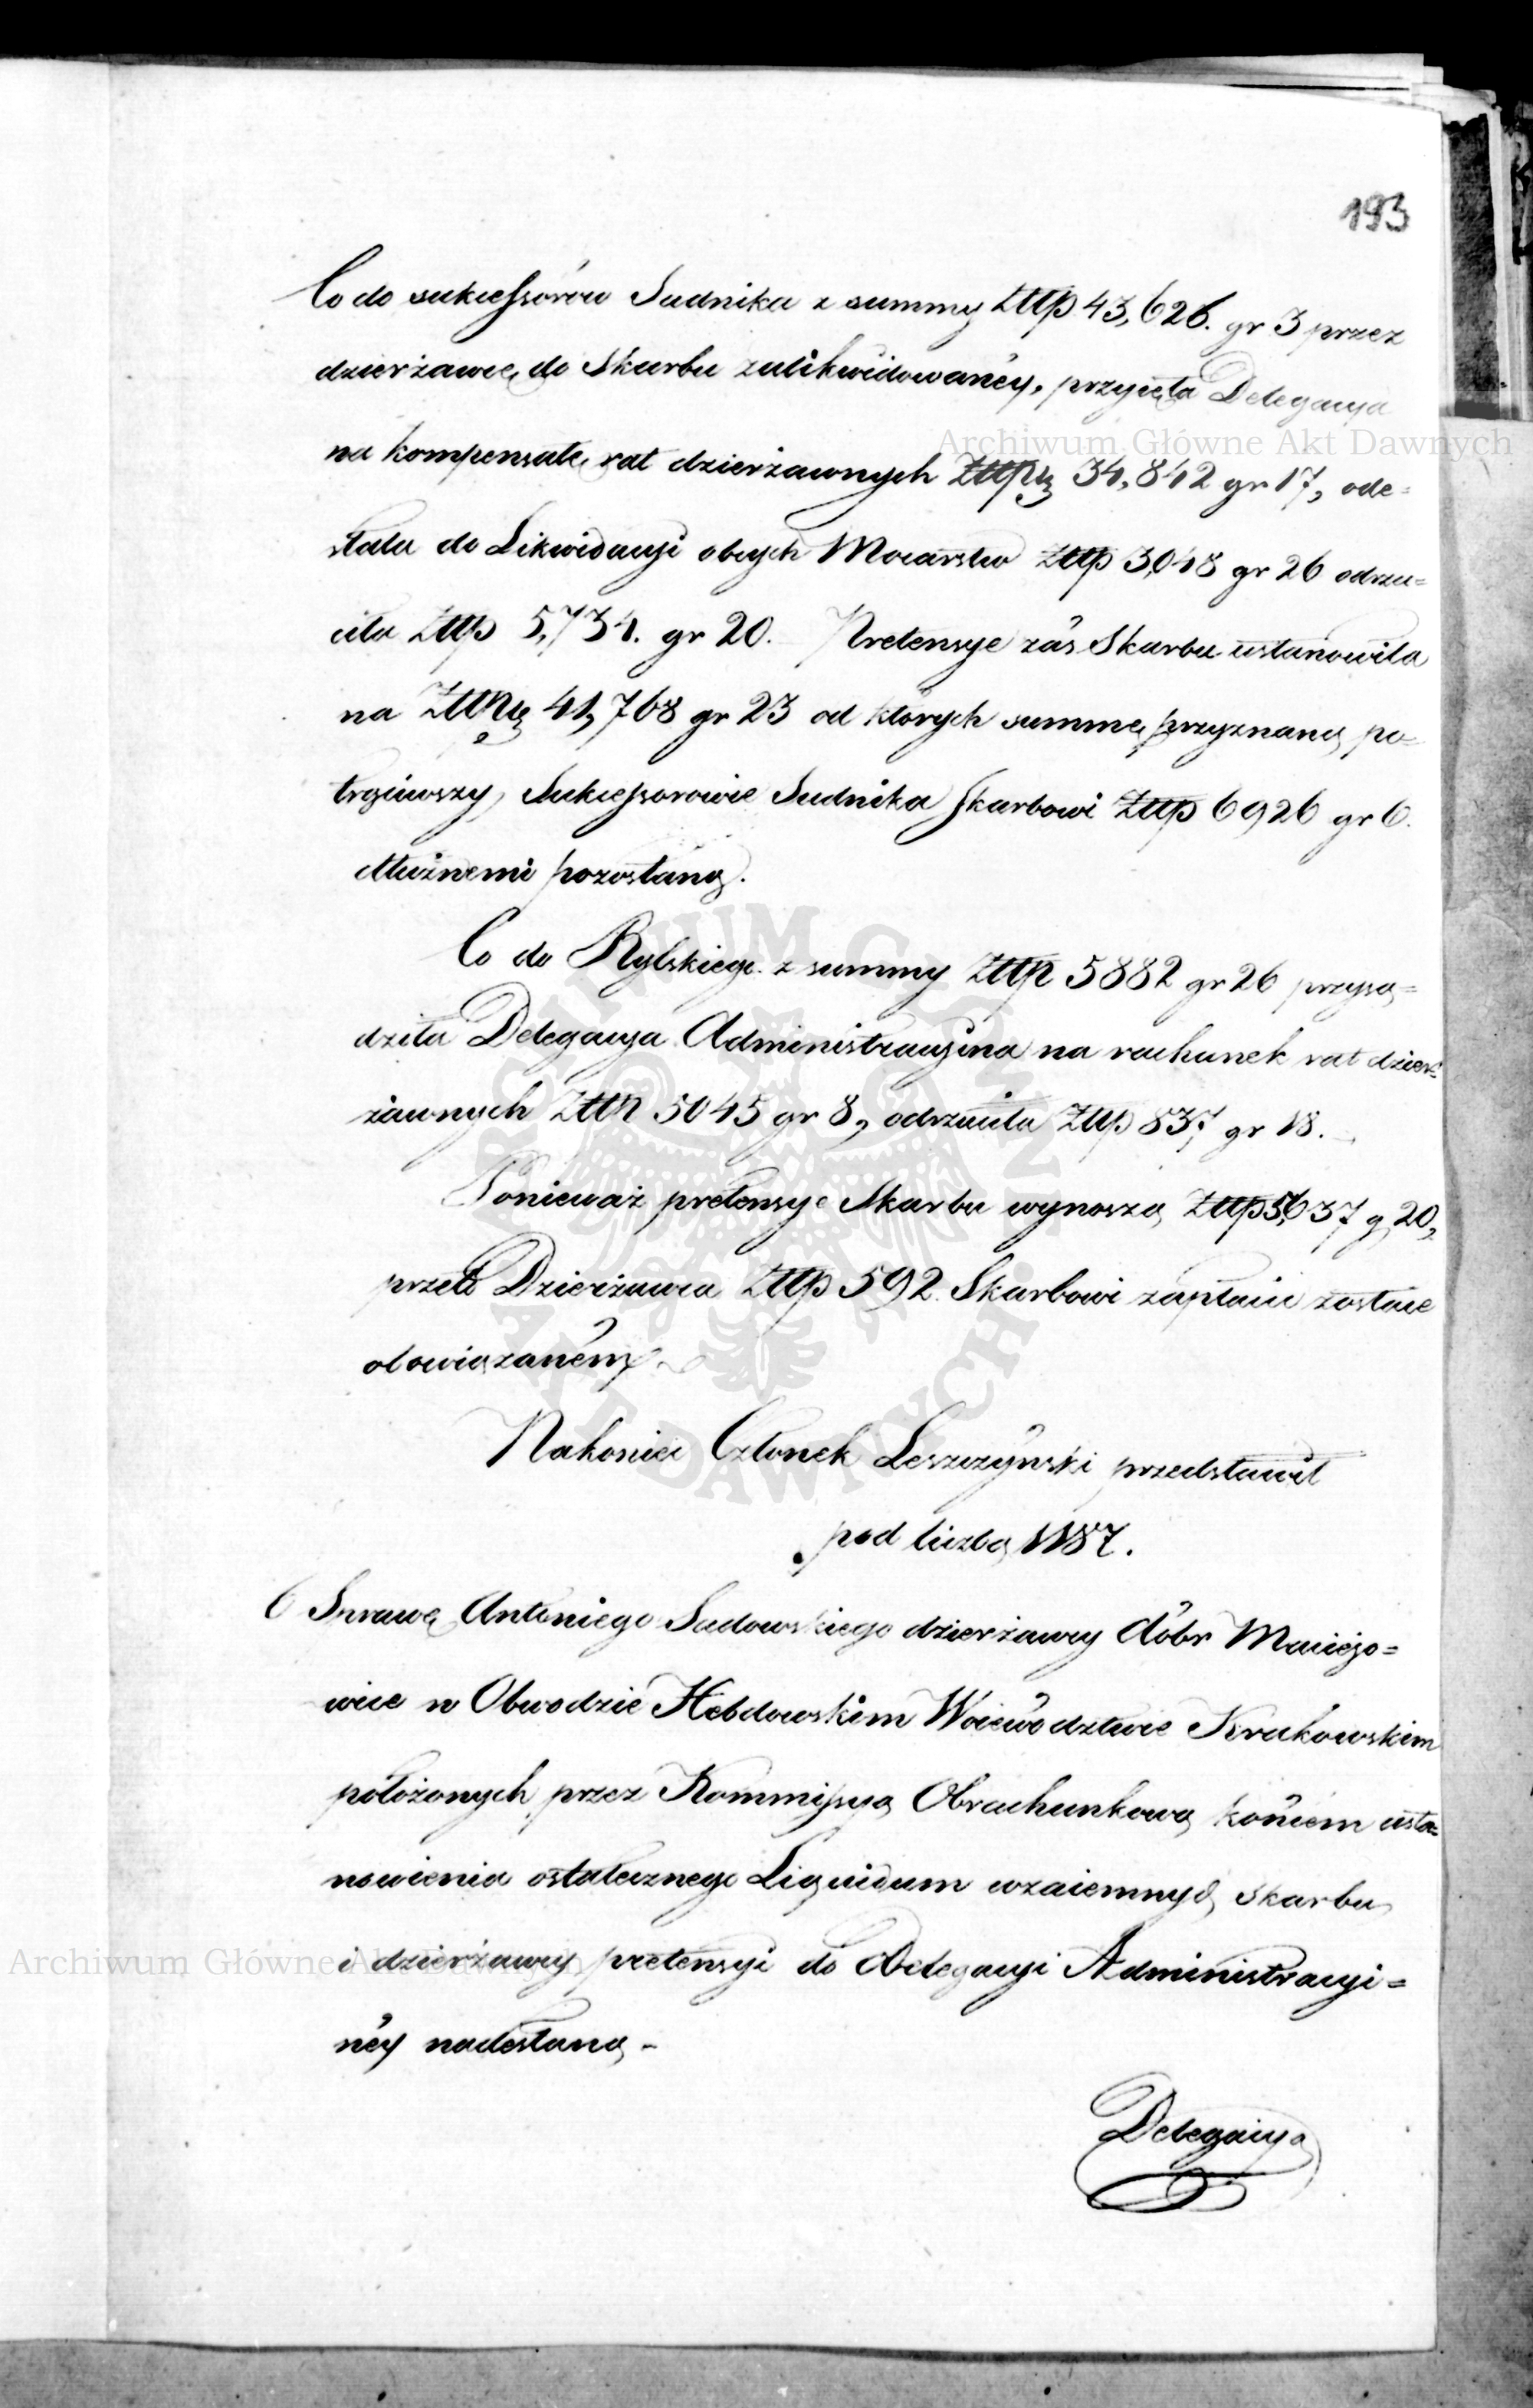 193
Co do sukcessorów Sudnika z summy Złtp 43,626. gr 3 przez
dzierżawcę do Skarbu zalikwidowanéy, przyięła Delegacya
na kompensatę rat dzierżawnych Złtp 34,842 gr 17, ode=
słała do Likwidacyi obcych Mocarstw Złtp 3,048 gr 26 odrzu=
ciła Złtp 5,734. gr 20. Pretensye zaś Skarbu ustanowiła
na Złtp 41,768 gr 23 od których summę przyznaną po=
trąciwszy, Sukcessorowie Sudnika Skarbowi Złtp 6926 gr 6.
dłużnemi pozostaną.
Co do Rylskiego z summy Złtp 5882 gr 26 przysą=
dziła Delegacya Administracyina na rachunek rat dzier=
żawnych Złtp 5045 gr 8, odrzuciła Złtp 837 gr 18.
Ponieważ pretensye Skarbu wynoszą Złtp 5,637 g 20,
przeto Dzierżawca Złtp 592. Skarbowi zapłacić zostaie
obowiązanem
Nakoniec Członek Leszczyński przedstawił
pod liczbą 1187.
6 Sprawę Antoniego Sadowskiego dzierżawcy dóbr Macieio=
wice w Obwodzie Hebdowskim Woiewództwie Krakowskim
położonych przez Kommissyą Obrachunkową końcem usta=
nowienia ostatecznego Liquidum wzaiemnych Skarbu
i dzierżawcy pretensyi do Delegacyi Administracyi=
néy nadesłaną -
Delegacya
Archiwum Główne Akt Dawnych
Archiwum Główne Akt Dawnych
ARCHIWUM GŁÓWNE AKT DAWNYCH